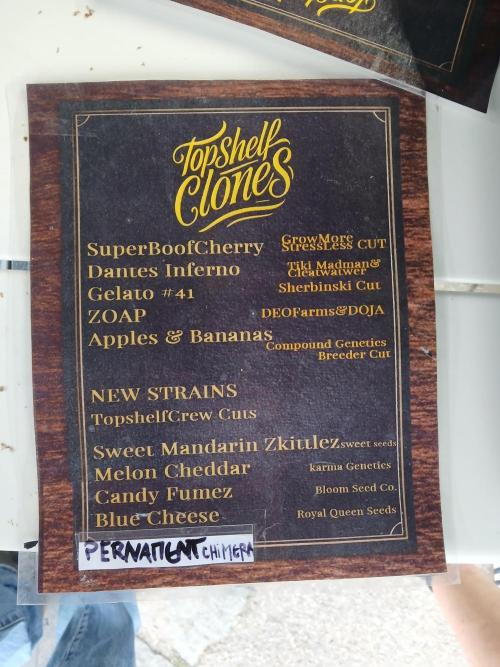 TopShelf
Clones
SuperBoofCherry GrowMore
StressLess CUT
Dantes Inferno Tiki Madman&
Cleatwatwer
Gelato #41 Sherbinski Cut
ZOAP DEOFarms&DOJA
Apples & Bananas Compound Genetics
Breeder Cut
NEW STRAINS
TopshelfCrew Cuts
Sweet Mandarin Zkittlez sweet seeds
Melon Cheddar karma Genetics
Candy Fumez Bloom Seed Co.
Blue Cheese Royal Queen Seeds
PERNAMENT CHIMERA